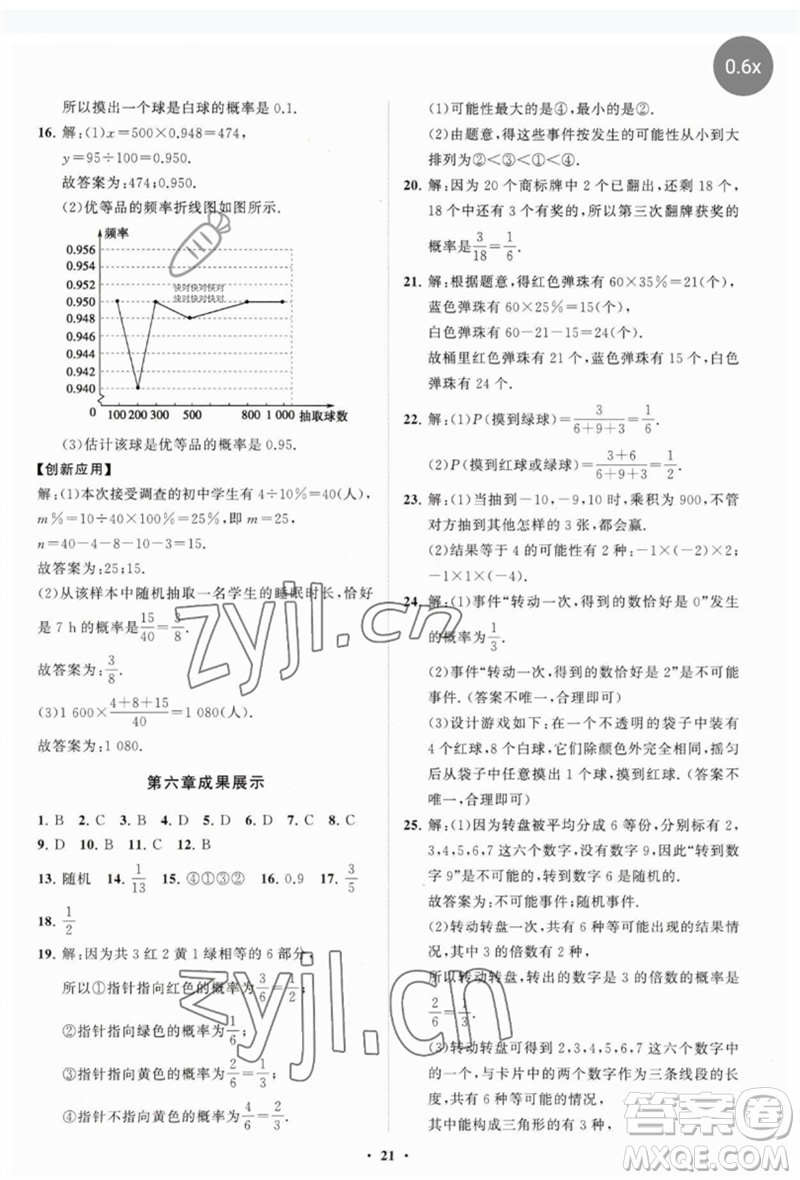 0.6x
所以摸出一个球是白球的概率是 0.1.
16. 解:(1)x=500×0.948=474,
y=95÷100=0.950.
故答案为:474;0.950.
(2)优等品的频率折线图如图所示.
频率
0.956
0.954
0.952
0.950
0.948
0.946
0.944
0.942
0.940
快对快对快对
快对快对快对
0 100 200 300 500 800 1 000 抽取球数
(3)估计该球是优等品的概率是 0.95.
【创新应用】
解:(1)本次接受调查的初中学生有 4÷10%=40(人),
m%=10÷40×100%=25%,即 m=25,
n=40-4-8-10-3=15.
故答案为:25;15.
(2)从该样本中随机抽取一名学生的睡眠时长,恰好
是 7 h 的概率是15/40=3/8.
故答案为:3/8.
(3)1 600×(4+8+15)/40=1 080(人).
故答案为:1 080.
第六章成果展示
1. B 2. C 3. B 4. D 5. D 6. B 7. D 8. C
9. D 10. B 11. C 12. B
13. 随机 14. 1/13 15. ④①③② 16. 0.9 17. 3/5
18. 1/2
19. 解:因为共 3 红 2 黄 1 绿相等的 6 部分,
所以①指针指向红色的概率为3/6=1/2;
②指针指向绿色的概率为1/6;
③指针指向黄色的概率为2/6=1/3;
④指针不指向黄色的概率为4/6=2/3.
(1)可能性最大的是④,最小的是②.
(2)由题意,得这些事件按发生的可能性从小到大
排列为②<③<①<④.
20. 解:因为 20 个商标牌中 2 个已翻出,还剩 18 个,
18 个中还有 3 个有奖的,所以第三次翻牌获奖的
概率是3/18=1/6.
21. 解:根据题意,得红色弹珠有 60×35%=21(个),
蓝色弹珠有 60×25%=15(个),
白色弹珠有 60-21-15=24(个).
故桶里红色弹珠有 21 个,蓝色弹珠有 15 个,白色
弹珠有 24 个.
22. 解:(1)P(摸到绿球)=3/(6+9+3)=1/6.
(2)P(摸到红球或绿球)=(3+6)/(6+9+3)=1/2.
23. 解:(1)当抽到-10,-9,10 时,乘积为 900,不管
对方抽到其他怎样的 3 张,都会赢.
(2)结果等于 4 的可能性有 2 种:-1×(-2)×2;
-1×1×(-4).
24. 解:(1)事件“转动一次,得到的数恰好是 0”发生
的概率为1/3.
(2)事件“转动一次,得到的数恰好是 2”是不可能
事件.(答案不唯一,合理即可)
(3)设计游戏如下:在一个不透明的袋子中放进
4 个红球,8 个白球,它们除颜色外完全相同,摇匀
后从袋子中任意摸出 1 个球,摸到红球.(答案不唯
一,合理即可)
25. 解:(1)因为转盘被平均分成 6 等份,分别标有 2,
3,4,5,6,7 这六个数字,没有数字 9,因此“转到数
字 9”是不可能的,转到各个数字是随机的.
故答案为:不可能事件;随机事件.
(2)转动转盘一次,共有 6 种等可能出现的结果情
况,其中是 3 的倍数的有 2 种,
所以转动转盘,转出的数字是 3 的倍数的概率是
2/6=1/3.
(3)转动转盘可得到 2,3,4,5,6,7 这六个数字中
的一个,与卡片中的数字分别作为三条线段的长
度,
共有 6 种等可能的情况,
其中能构成三角形的有 1 种,
zyjl.cn
zyjl.cn
答案卷
MXQE.COM
• 21 •